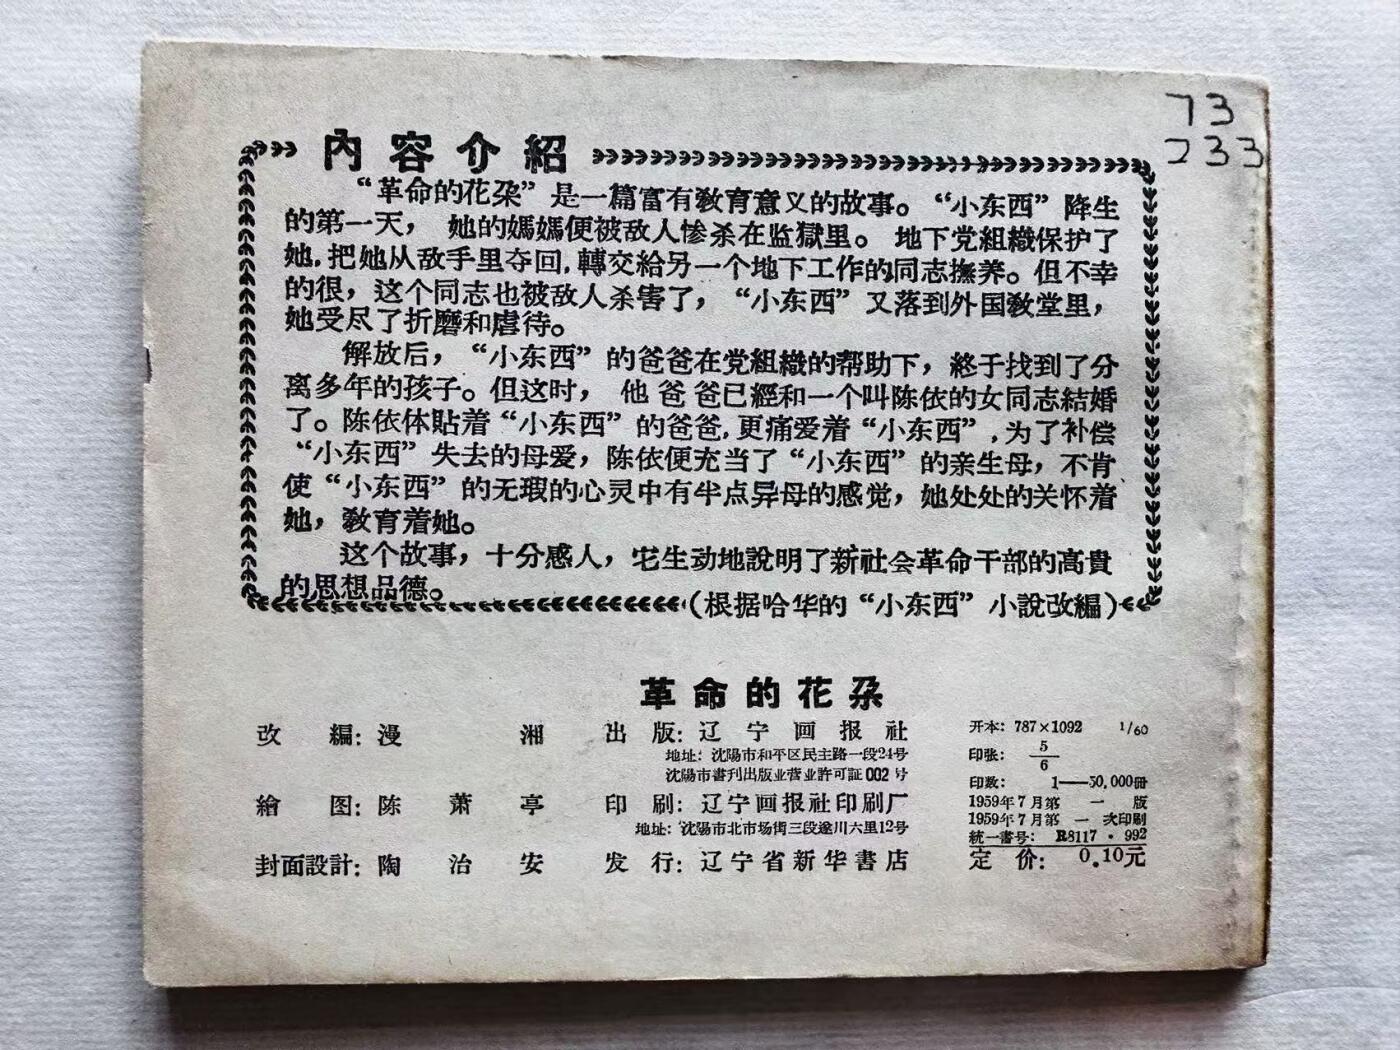 73
233
內容介紹
“革命的花朶”是一篇富有敎育意义的故事。“小东西”降生
的第一天，她的媽媽便被敌人惨杀在监獄里。地下党組織保护了
她，把她从敌手里夺回，轉交給另一个地下工作的同志撫养。但不幸
的很，这个同志也被敌人杀害了，“小东西”又落到外国敎堂里，
她受尽了折磨和虐待。
解放后，“小东西”的爸爸在党組織的帮助下，終于找到了分
离多年的孩子。但这时，他爸爸已經和一个叫陈依的女同志結婚
了。陈依体貼着“小东西”的爸爸，更痛爱着“小东西”，为了补偿
“小东西”失去的母爱，陈依便充当了“小东西”的亲生母，不肯
使“小东西”的无瑕的心灵中有半点异母的感觉，她处处的关怀着
她，敎育着她。
这个故事，十分感人，它生动地說明了新社会革命干部的高貴
的思想品德。
(根据哈华的“小东西”小說改編)
革命的花朶
改編：漫湘 出版：辽宁画报社 开本：787×1092 1/60
地址：沈陽市和平区民主路一段24号
沈陽市書刊出版业营业許可証002号
印张：5/6
印数：1——50,000冊
繪图：陈萧亭 印刷：辽宁画报社印刷厂 1959年7月第一版
地址：沈陽市北市场街三段遂川六里12号 1959年7月第一次印刷
統一書号：R8117·992
封面設計：陶治安 发行：辽宁省新华書店 定价：0.10元